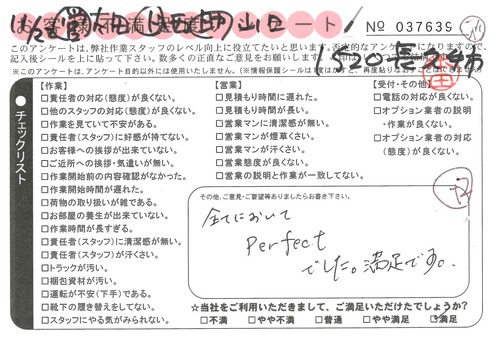 No 037639
このアンケートは、弊社作業スタッフのレベル向上に役立てたいと思います。
記入後シールを上に貼って下さい。
※このアンケートは、アンケート目的以外には使用いたしません。
チェックリスト
【作業】
□責任者の対応(態度)が良くない。
□他のスタッフの対応(態度)が良くない。
□作業を見ていて不安がある。
□責任者(スタッフ)に好感が持てない。
□お客様への挨拶が出来ていない。
□ご近所への挨拶・気遣いが無い。
□作業開始前の内容確認がなかった。
□作業開始時間が遅れた。
□荷物の取り扱いが雑である。
□お部屋の養生が出来ていない。
□作業時間が長すぎる。
□責任者(スタッフ)に清潔感が無い。
□責任者(スタッフ)が汗くさい。
□トラックが汚い。
□梱包資材が汚い。
□運転が不安(下手)である。
□靴下の履き替えをしてない。
□スタッフにやる気がみられない。
【営業】
□見積もり時間に遅れた。
□見積もり時間が長い。
□営業マンに清潔感が無い。
□営業マンが煙草くさい。
□営業マンが汗くさい。
□営業態度が良くない。
□営業の説明と作業が一致してない。
【受付・その他】
□電話の対応が良くない。
□オプション業者の説明
・作業が良くない。
□オプション業者の対応
(態度)が良くない。
その他、ご意見・ご要望等ありましたらお書き下さい。
全てにおいて
Perfect
でした。満足です。
☆当社をご利用いただきまして、ご満足いただけたでしょうか?
□不満 □やや不満 □普通 □やや満足 □満足